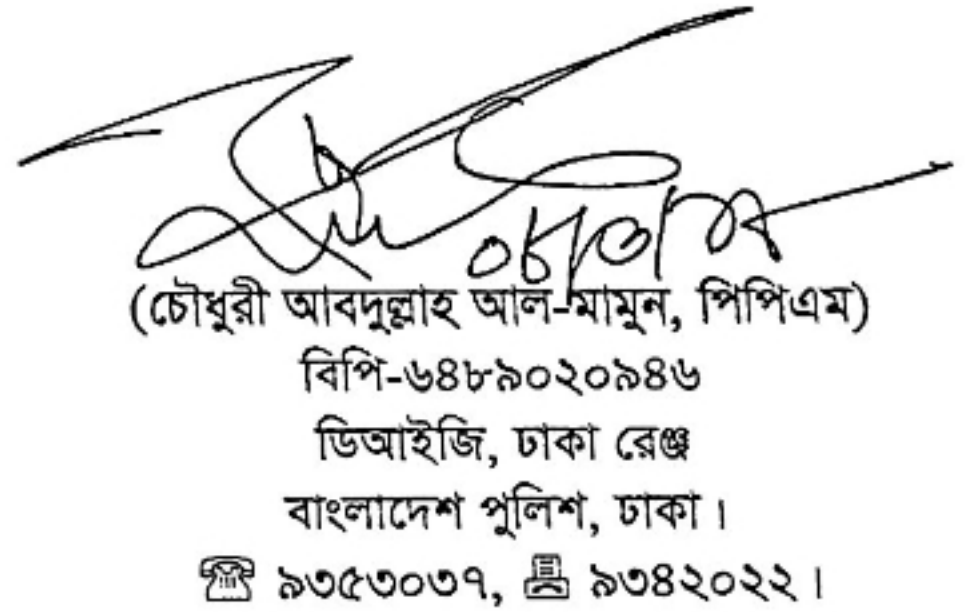 (চৌধুরী আবদুল্লাহ আল-মামুন, পিপিএম)
বিপি-৬৪৮৯০২০৯৪৬
ডিআইজি, ঢাকা রেঞ্জ
বাংলাদেশ পুলিশ, ঢাকা।
☎ ৯৩৫৩০৩৭, 📠 ৯৩৪২০২২।